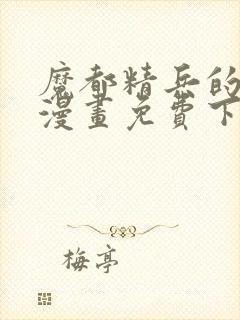 魔都精兵的
漫畫免費下
梅亭